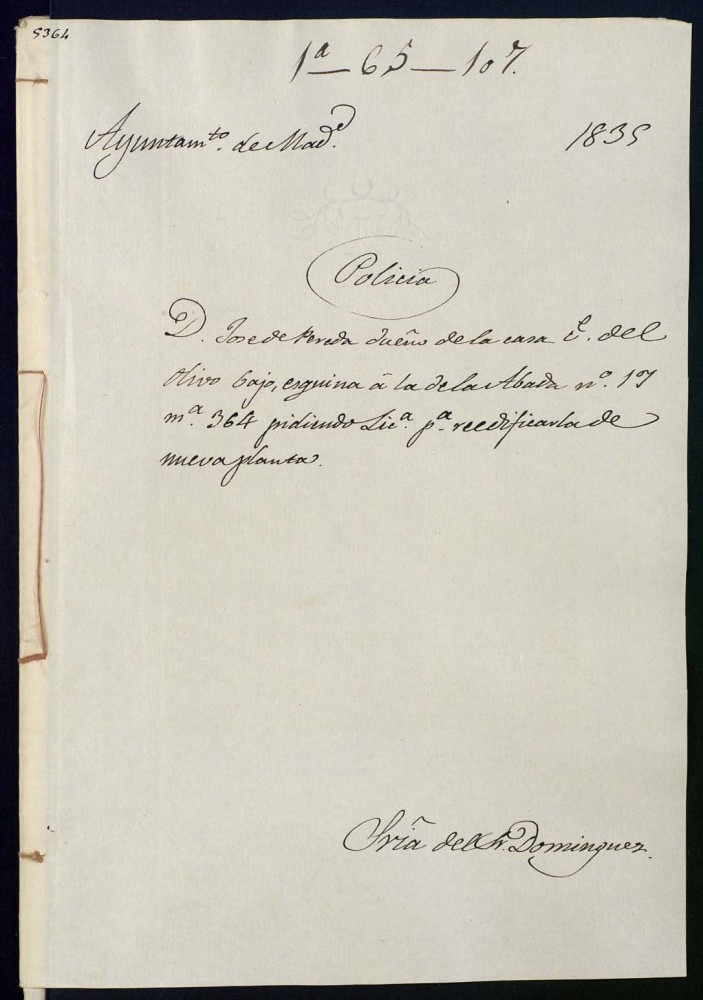 5364
1ª-65-107.
Ayuntamto. de Madd.
1835
Policia
D. Jose de Pereda dueño de la casa C. del
Olivo bajo, esquina á la de la Abada nº. 17
mª. 364 pidiendo Lica. pª. reedificarla de
nueva planta.
Sria del Sr. Dominguez.